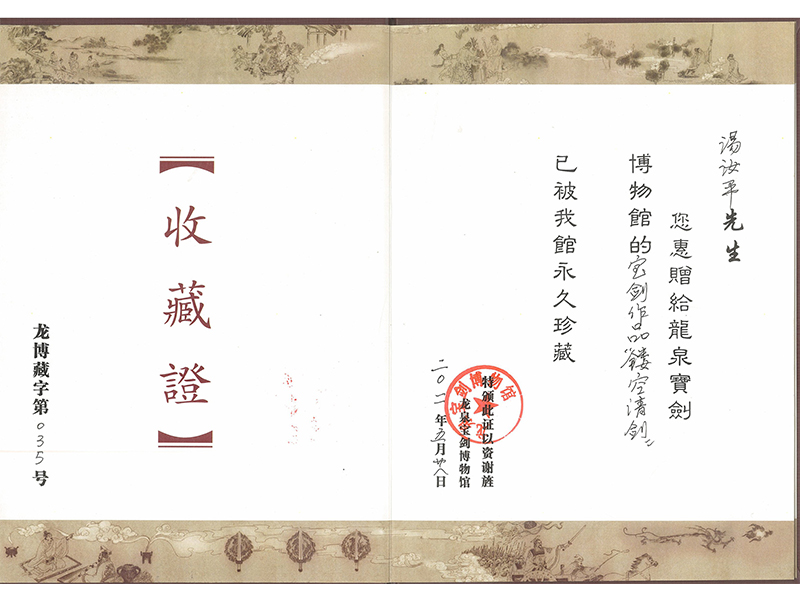 湯汝平先生
您惠贈給龍泉寶劍
博物館的宝剑作品"镂空清剑"
已被我館永久珍藏
特颁此证以资谢旌
龙泉宝剑博物馆
二〇一一年五月廿八日
【收藏證】
龙博藏字第035号